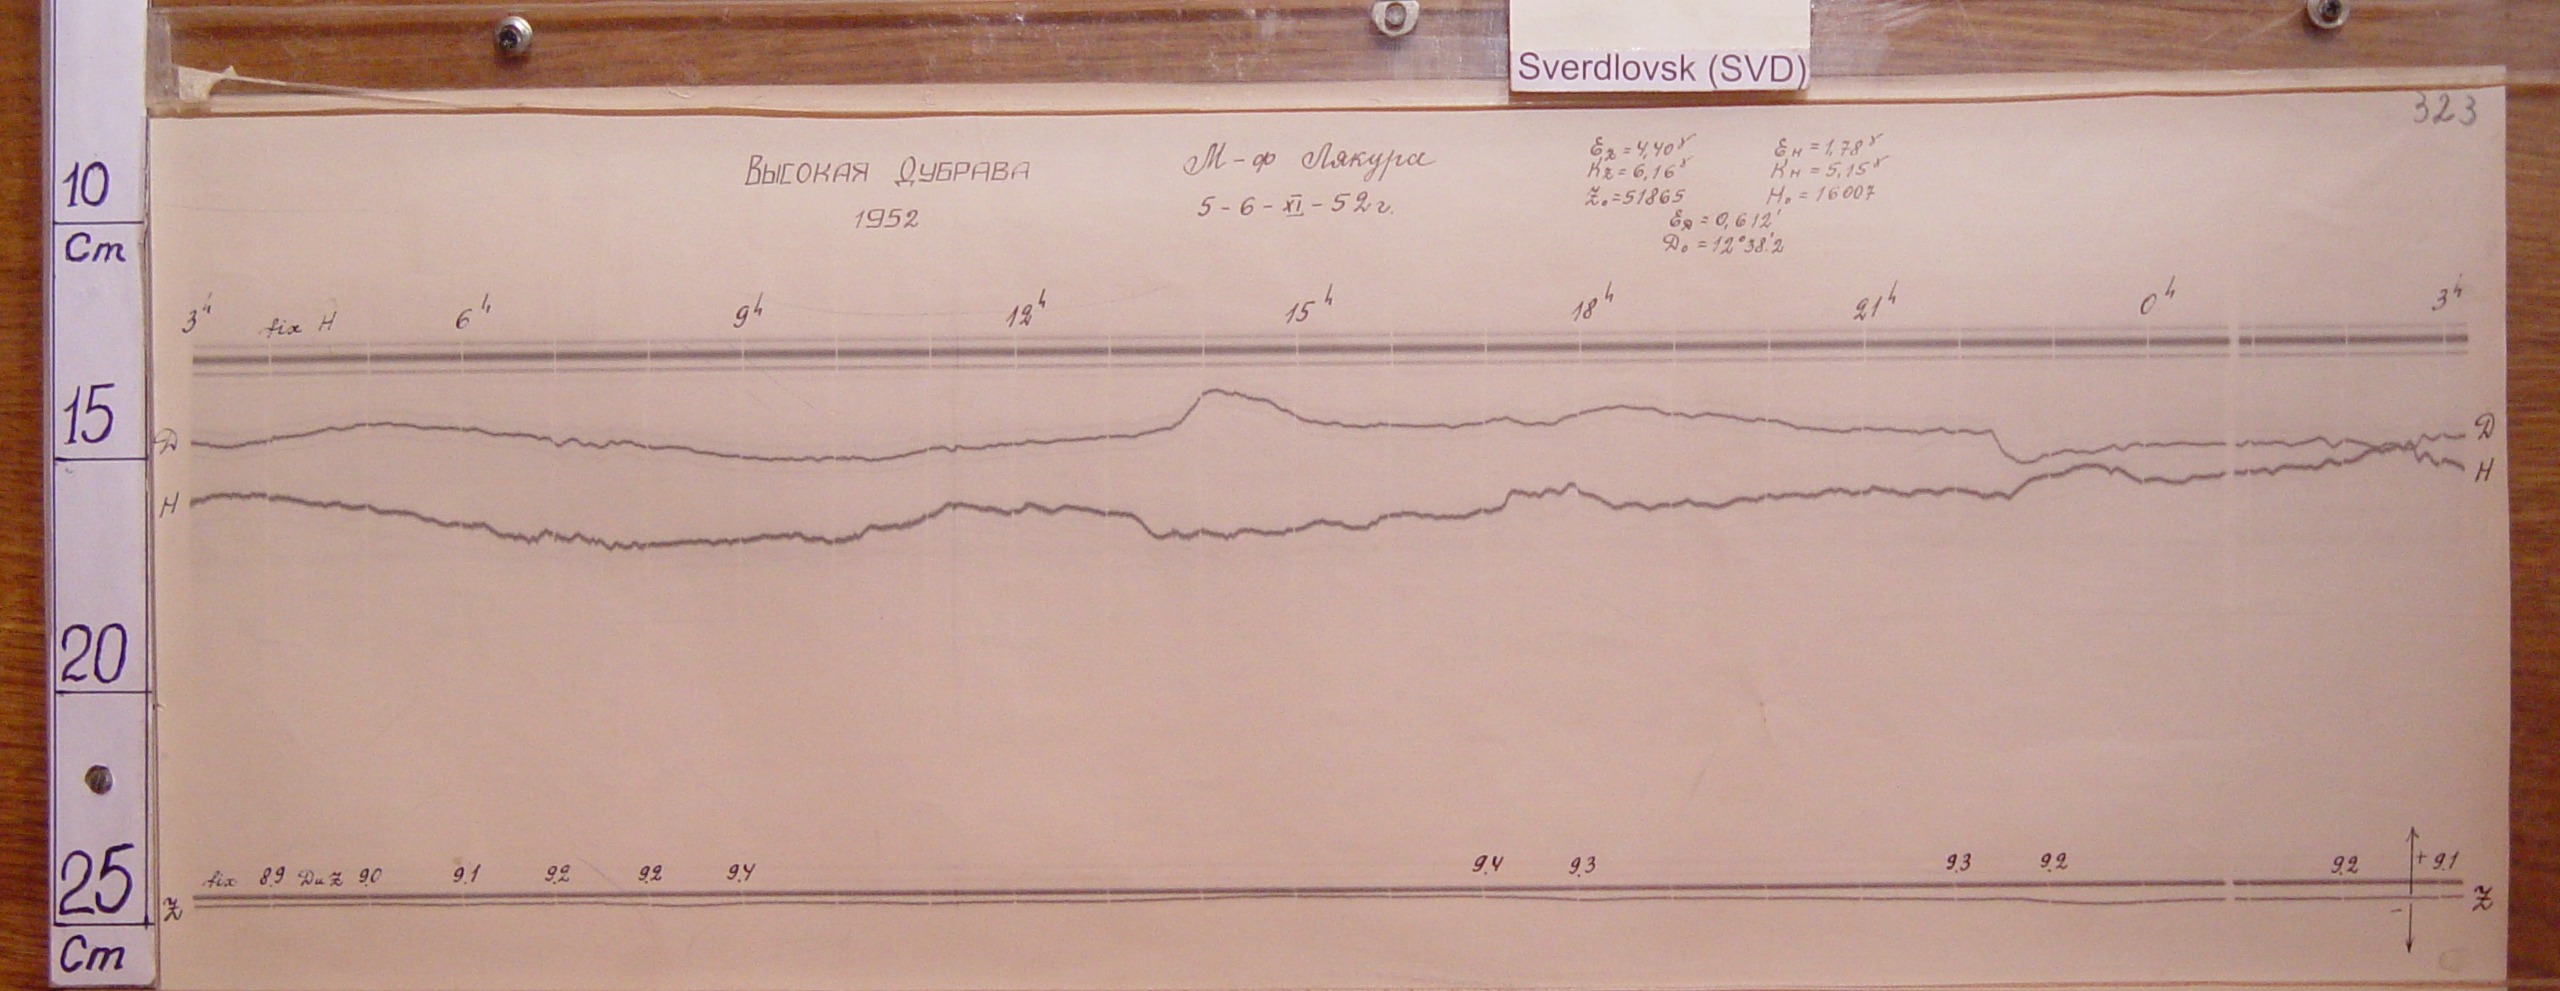 Sverdlovsk (SVD)
323
Высокая Дубрава
1952
М-ф Лякура
5-6-XI-52 г.
Ez = 4,40γ Eн = 1,78γ
Kz = 6,16γ Kн = 5,15γ
Z₀ = 51865 H₀ = 16007
Eд = 0,612'
D₀ = 12°38.'2
10
Cm
15
20
25
Cm
3h fix H 6h 9h 12h 15h 18h 21h 0h 3h
D D
H H
fix 8.9 D и Z 9.0 9.1 9.2 9.2 9.4 9.4 9.3 9.3 9.2 9.2 + 9.1
Z - Z